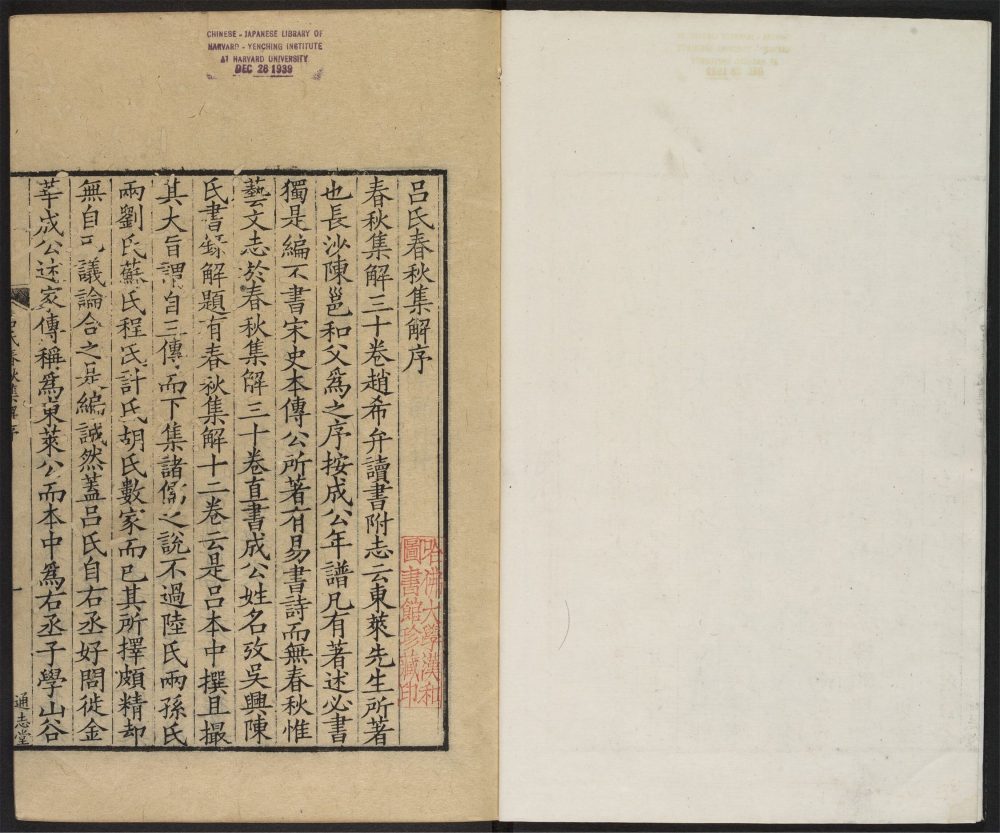 CHINESE - JAPANESE LIBRARY OF
HARVARD - YENCHING INSTITUTE
AT HARVARD UNIVERSITY
DEC 28 1939
呂氏春秋集解序
春秋集解三十卷趙希弁讀書附志云東萊先生所著
也長沙陳邕和父爲之序按成公年譜凡有著述必書
獨是編不書宋史本傳公所著有易書詩而無春秋惟
藝文志於春秋集解三十卷直書成公姓名攷吳興陳
氏書錄解題有春秋集解十二卷云是呂本中撰且撮
其大旨謂自三傳而下集諸儒之說不過陸氏兩孫氏
兩劉氏蘇氏程氏許氏胡氏數家而已其所擇頗精却
無自己議論合之是編誠然蓋呂氏自右丞好問徙金
華成公述家傳稱爲東萊公而本中爲右丞子學山谷
呂氏春秋集解序
一
通志堂
哈佛大學漢和
圖書館珍藏印